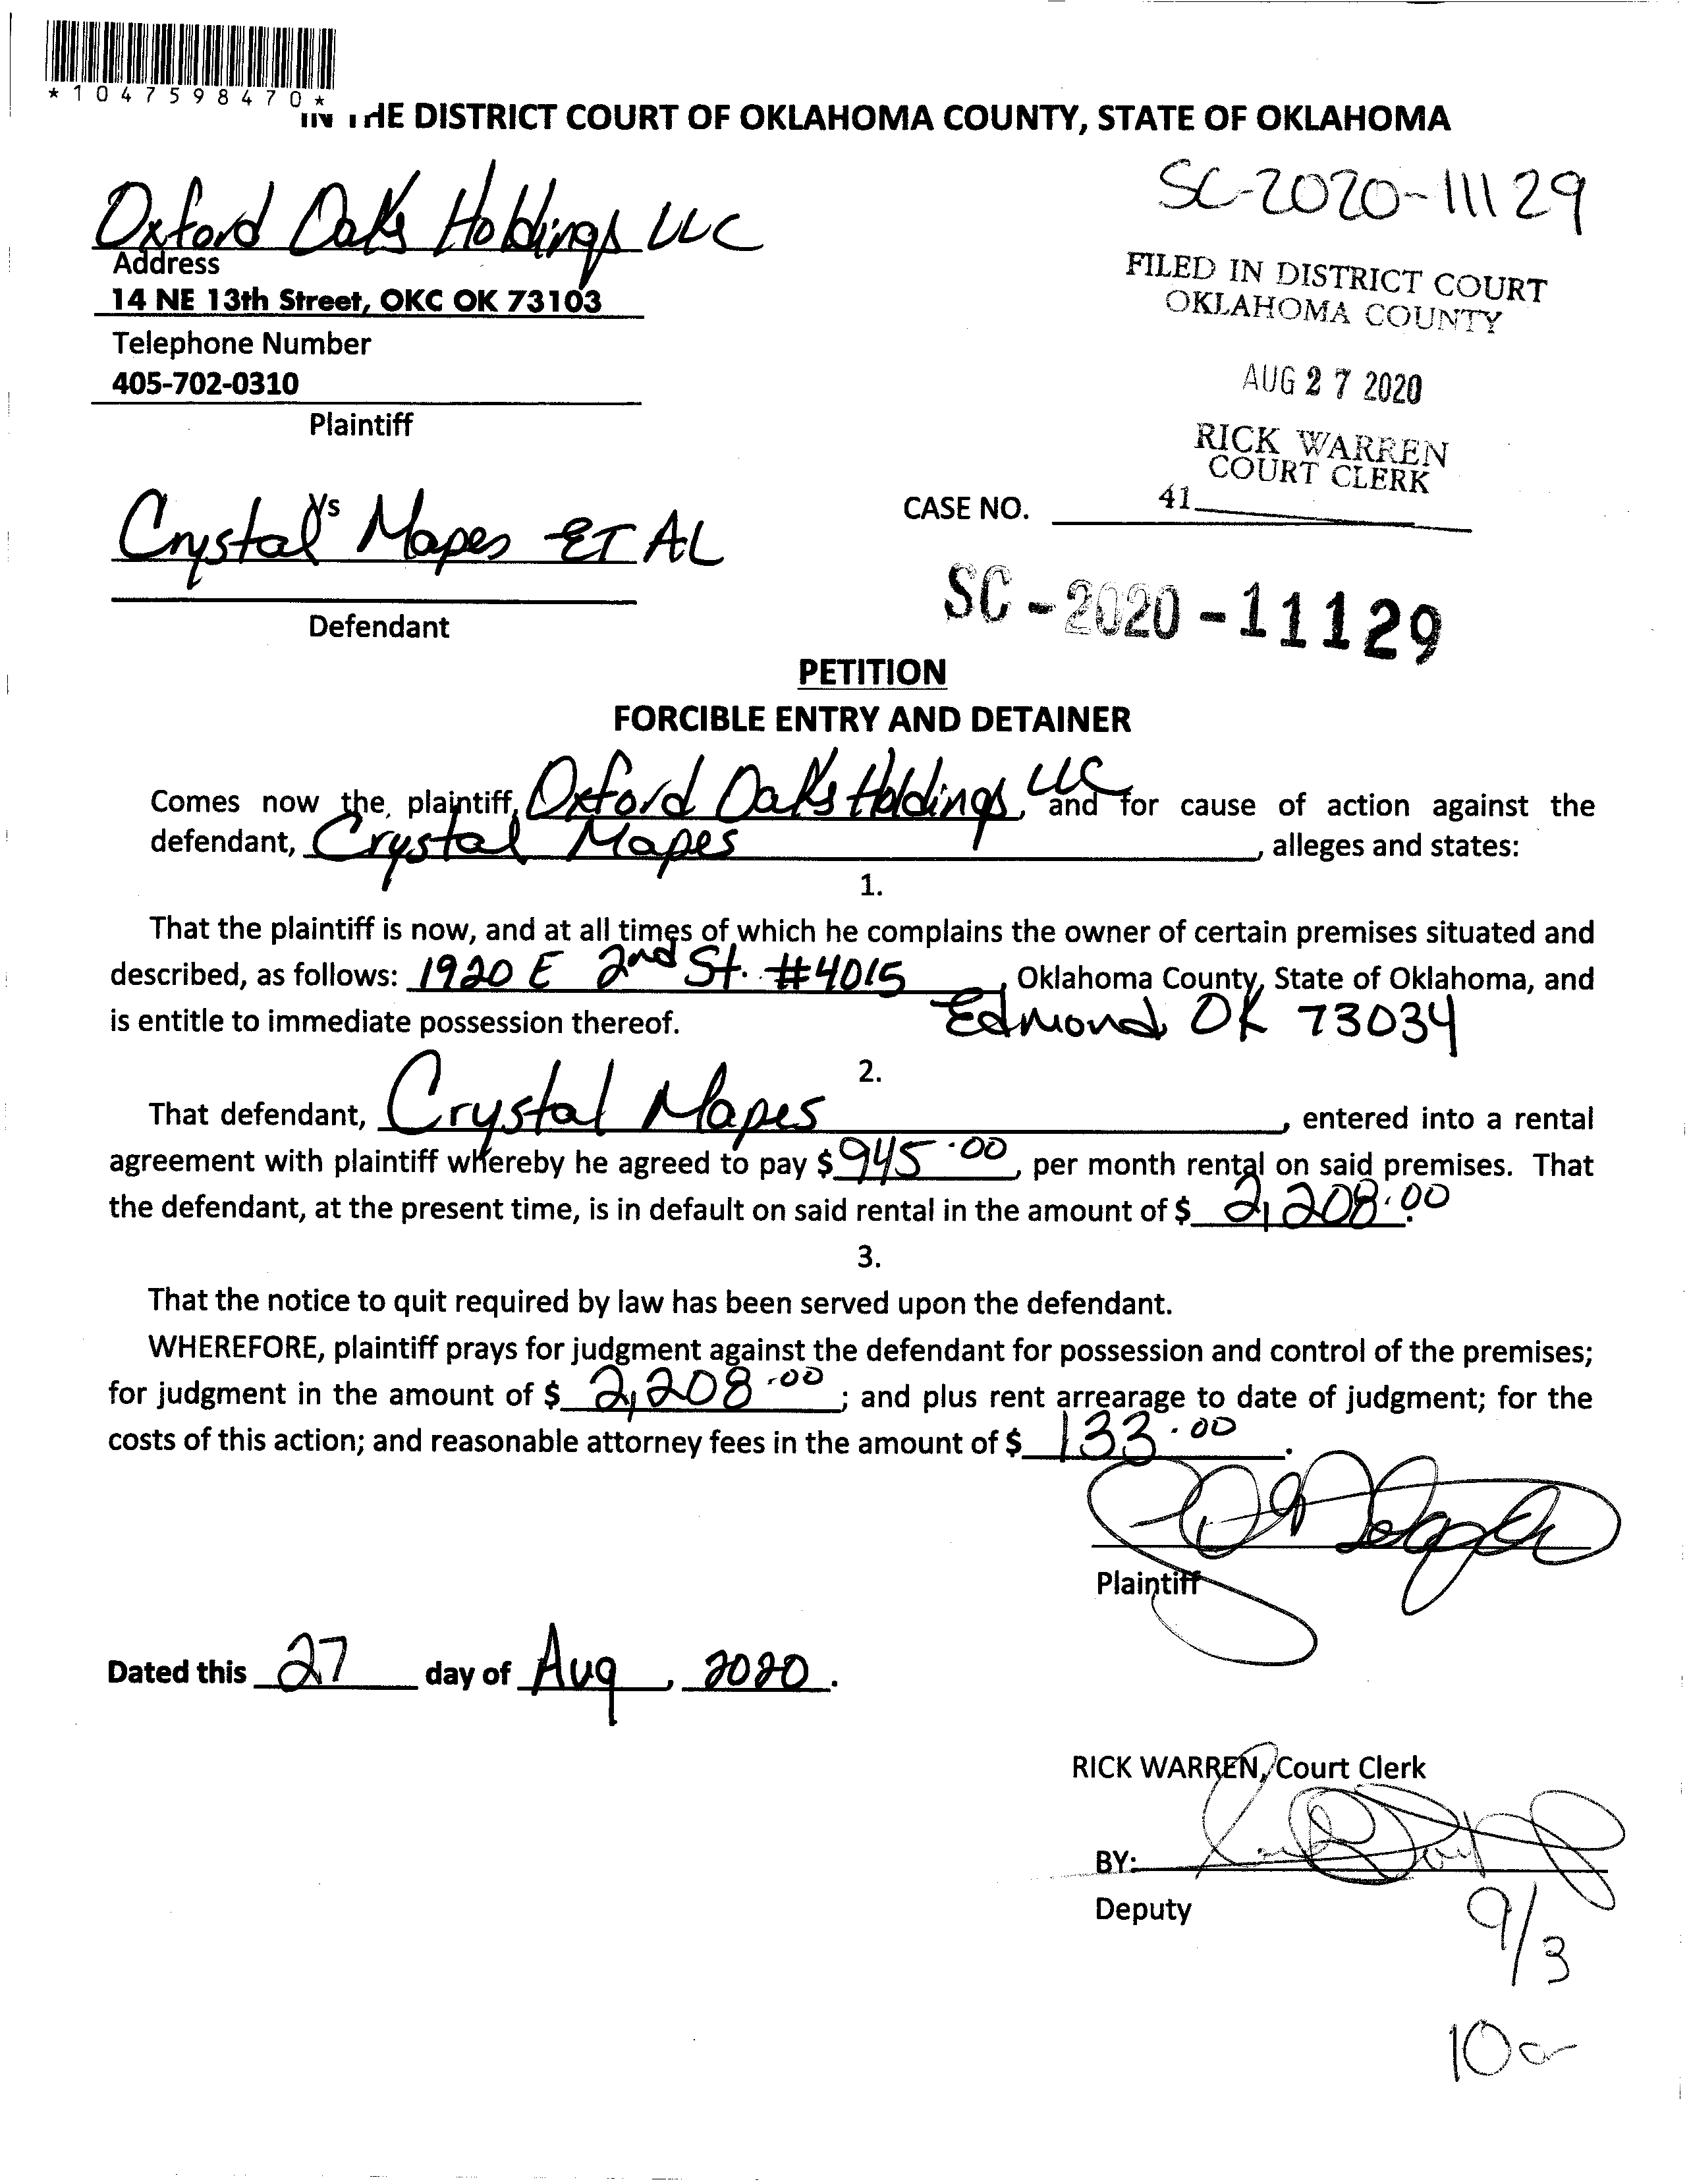 *1047598470*
IN THE DISTRICT COURT OF OKLAHOMA COUNTY, STATE OF OKLAHOMA
SC-2020-11129
Oxford Oaks Holdings LLC
Address
14 NE 13th Street, OKC OK 73103
Telephone Number
405-702-0310
Plaintiff
FILED IN DISTRICT COURT
OKLAHOMA COUNTY
AUG 27 2020
RICK WARREN
COURT CLERK
41
Vs
Crystal Mapes ET AL
Defendant
CASE NO.
SC-2020-11129
PETITION
FORCIBLE ENTRY AND DETAINER
Comes now the, plaintiff, Oxford Oaks Holdings, LLC and for cause of action against the
defendant, Crystal Mapes, alleges and states:
1.
That the plaintiff is now, and at all times of which he complains the owner of certain premises situated and
described, as follows: 1920 E 2nd St. #4015, Oklahoma County, State of Oklahoma, and
is entitle to immediate possession thereof. Edmond OK 73034
2.
That defendant, Crystal Mapes, entered into a rental
agreement with plaintiff whereby he agreed to pay $ 945.00, per month rental on said premises. That
the defendant, at the present time, is in default on said rental in the amount of $ 2,208.00.
3.
That the notice to quit required by law has been served upon the defendant.
WHEREFORE, plaintiff prays for judgment against the defendant for possession and control of the premises;
for judgment in the amount of $ 2,208.00; and plus rent arrearage to date of judgment; for the
costs of this action; and reasonable attorney fees in the amount of $ 133.00.
Plaintiff
Dated this 27 day of Aug, 2020.
RICK WARREN, Court Clerk
BY:
Deputy
9/3
10a